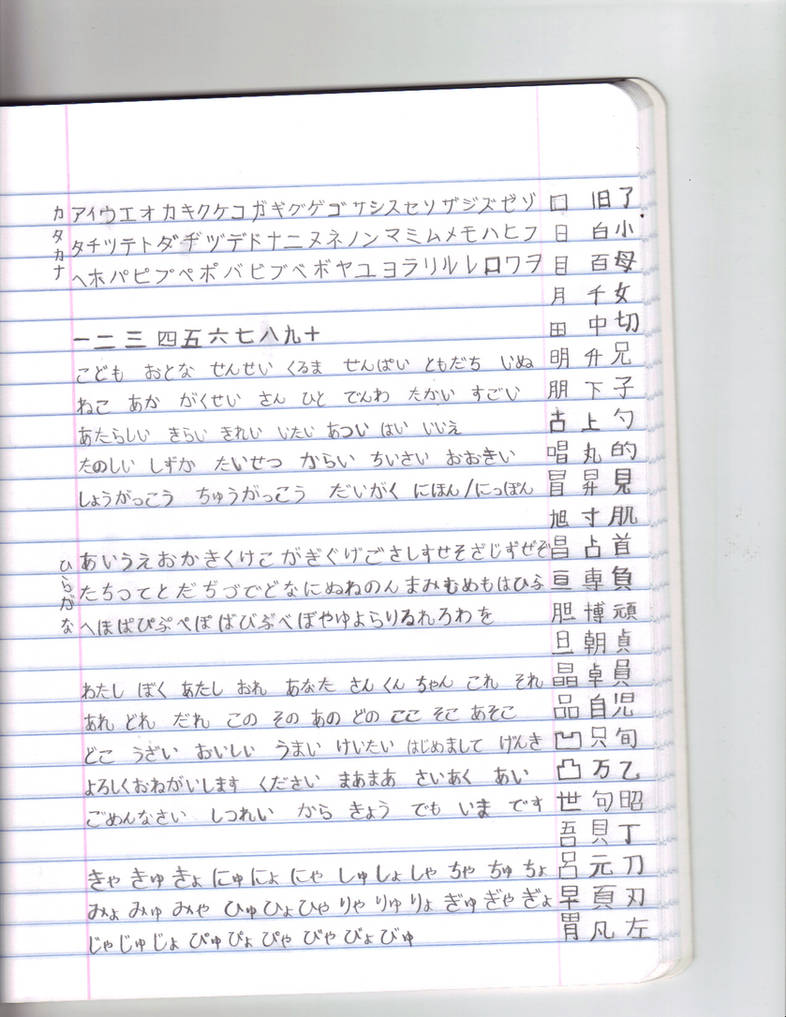 カタカナ
アイウエオカキクケコガギグゲゴサシスセソザジズゼゾ
タチツテトダヂヅデドナニヌネノンマミムメモハヒフ
ヘホパピプペポバビブベボヤユヨラリルレロワヲ
一二三四五六七八九十
こども おとな せんせい くるま せんぱい ともだち いぬ
ねこ あか がくせい さん ひと でんわ たかい すごい
あたらしい きらい きれい いたい あつい はい いいえ
たのしい しずか たいせつ からい ちいさい おおきい
しょうがっこう ちゅうがっこう だいがく にほん/にっぽん
ひらがな
あいうえおかきくけこがぎぐげごさしすせそざじずぜぞ
たちつてとだぢづでどなにぬねのんまみむめもはひふ
へほぱぴぷぺぽばびぶべぼやゆよらりるれろわを
わたし ぼく あたし おれ あなた さん くん ちゃん これ それ
あれ どれ だれ この その あの どの ここ そこ あそこ
どこ うざい おいしい うまい けいたい はじめまして げんき
よろしくおねがいします ください まあまあ さいあく あい
ごめんなさい しつれい から きょう でも いま です
きゃ きゅ きょ にゅ にょ にゃ しゅ しょ しゃ ちゃ ちゅ ちょ
みょ みゅ みゃ ひゅ ひょ ひゃ りゃ りゅ りょ ぎゅ ぎゃ ぎょ
じゃ じゅ じょ ぴゅ ぴょ ぴゃ びゃ びょ びゅ
口 旧 了
日 白 小
目 百 母
月 千 女
田 中 切
明 升 兄
朋 下 子
古 上 勺
唱 丸 的
冒 昇 見
旭 寸 肌
昌 占 首
亘 専 負
胆 博 頑
旦 朝 貞
晶 卓 員
品 自 児
凹 只 旬
凸 万 乙
世 句 昭
吾 貝 丁
呂 元 刀
早 頁 刃
胃 凡 左